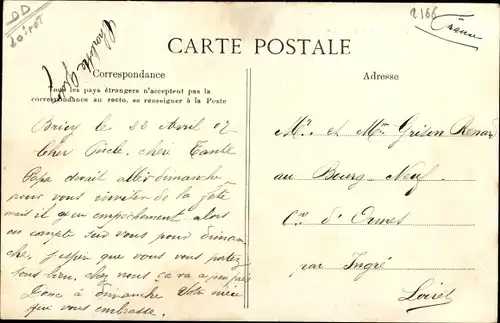 DD
Loiret
2166
France
CARTE POSTALE
Correspondance
Tous les pays étrangers n'acceptent pas la
correspondance au recto, se renseigner à la Poste
Bricy le 22 Avril 07
Cher Oncle, chère Tante
Papa devait aller dimanche
pour vous inviter de la fête
mais il y eu empêchement alors
on compte sur vous pour diman
che. J'espère que vous vous portez
tous bien, chez nous ça va a peu près
Donc à dimanche Votre nièce
qui vous embrasse.
Charlotte
Adresse
Mr. et Mme Grison Renard
au Bourg-Neuf
Cne d'Ormes
par Ingré
Loiret